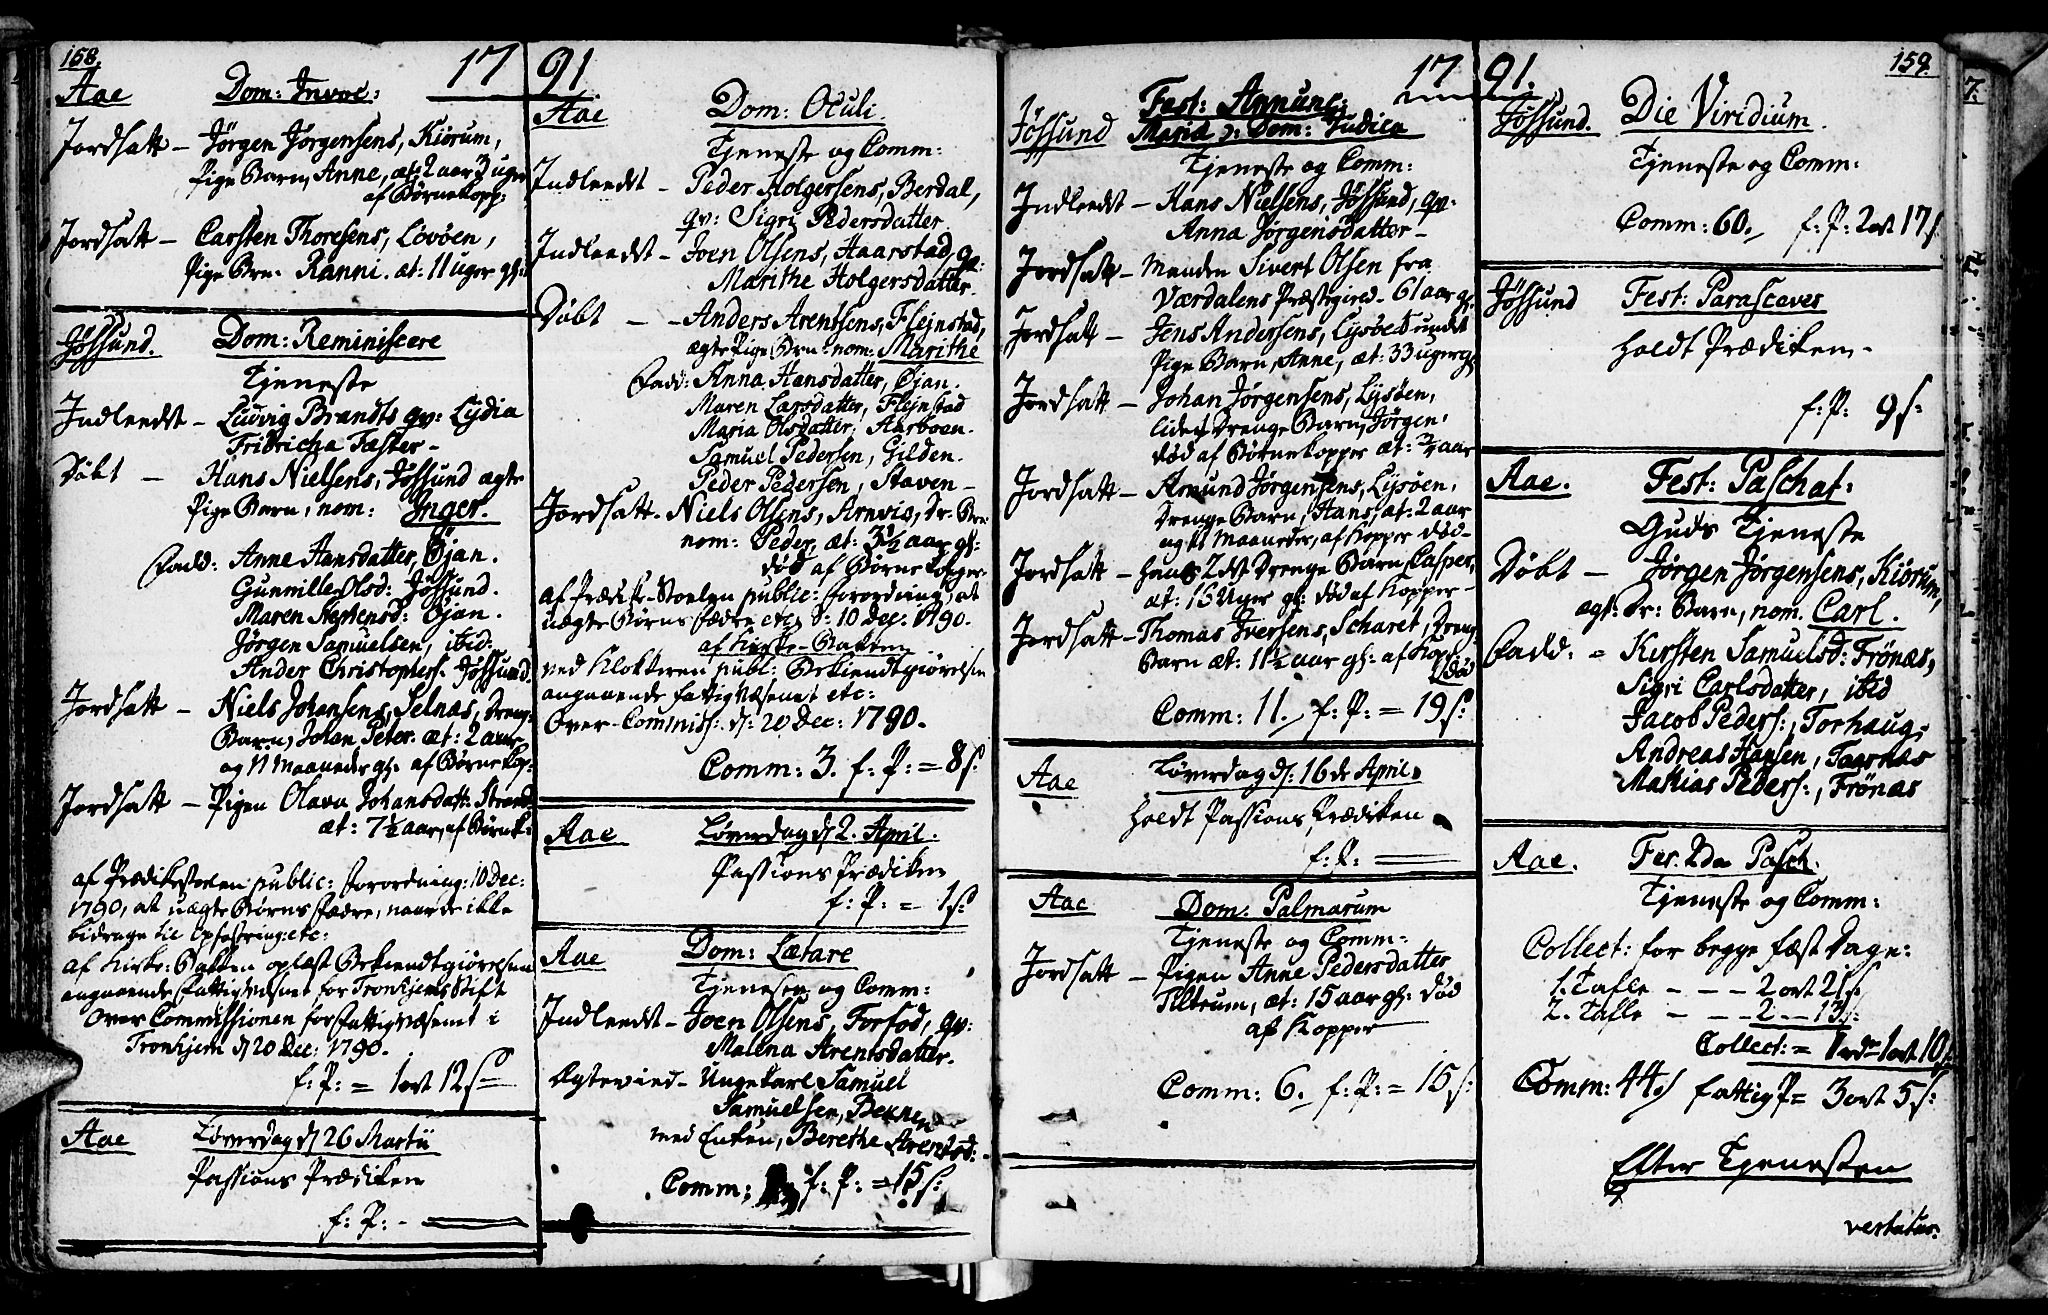 158.
1791
Aae Dom: Invoc:
Jordsatt - Jørgen Jørgensens, Kiørum,
Pige Barn, Anne, æt: 2 aar 3 uger
af Børnekopp:
Jordsatt - Carsten Thoresens, Lovøen,
Pige Brn. Ranni. æt: 11 uger gl:
Jøssund. Dom: Reminiscere
Tjeneste
Indleedt - Ludvig Brandts qv: Lydia
Fridricha Tæster -
Døbt - Hans Nielsens, Jøssund ægte
Pige Barn, nom: Inger.
Fadd: Anne Hansdatter, Øjan.
Gunnille Olsd: Jøssund.
Maren Steffensd: Øjan.
Jørgen Samuelsen, ibid:
Ander Christophers: Jøssund.
Jordsatt - Niels Johansens, Selnæs, Dreng-
Barn, Johan Peter. æt: 2 aar
og 11 Maaneder gl: af Børnekop:
Jordsatt - Pigen Olava Johansdatt: Strand
æt: 7½ aar, af Børnek:
af Prædikestolen public: Forordning: 10 Dec:
1790, at uægte Børns Fædre, naar de ikke
bidrage til Opfostring: etc:
af Kirke-Bakken oplæst Bekiendtgiørelsen
angaaende Fattigvæsenet for Tronhjems Stift
Over Commissionen for Fattigvæsenet i
Tronhjem d 20 Dec: 1790.
f: P: = 1 ort 12 s
Aae Løverdag d 26 Martii
Passions Prædiken
f: P: -
Aae Dom: Oculi.
Tjeneste og Comm:
Indleedt - Peder Holgersens, Berdal,
qv: Sigri Pedersdatter
Indleedt - Joen Olsens, Haarstad, qv:
Marithe Holgersdatter.
Døbt - - Anders Arentsens, Flejnstad,
ægte Pige Brn: nom: Marithe
Fadd: Anna Hansdatter, Øjan.
Maren Larsdatter, Flejnstad
Maria Olsdatter, Aarboen.
Samuel Pedersen, Gilden.
Peder Pedersen, Staven -
Jordsatt - Niels Olsens, Arnvig, Dr: Brn
nom: Peder, æt: 3½ aar gl:
død af Børnekopper
af Prædike-Stoelen public: Forordning, at
uægte Børns Fædre etc. d: 10 Dec: 1790.
af Kirke-Bakken
ved Klokkeren publ: Bekiendtgiørelsen
angaaende Fattigvæsenet etc:
Over-Commiss: d: 20 Dec: 1790.
Comm: 3. f: P: = 8 s:
Aae Løverdag d 2. April.
Passions Prædiken
f: P: = 1 s:
Aae Dom: Lætare
Tjenesten og Comm:
Indleedt - Joen Olsens, Forfod, qv:
Malena Arentsdatter.
Ægtevied - Ungekarl Samuel
Samuelsen,
med Enken, Berethe Arentsd:
Comm: f: P: = 15 s:
159.
1791.
Jøssund Fest: Annunc:
Maria : Dom: Judica
Tjeneste og Comm:
Indleedt - Hans Nielsens, Jøssund, qv:
Anna Jørgensdatter -
Jordsatt - Manden Sivert Olsen fra
Værdalens Præstegield - 61 aar gl.
Jordsatt - Jens Andersens, Lysøesundet
Pige Barn, Anne, æt: 33 uger gl
Jordsatt - Johan Jørgensens, Lysøen,
lidet Drenge Barn, Jørgen,
død af Børnekopper æt: aar
Jordsatt - Amund Jørgensens, Lysøen,
Drenge Barn, Hans, æt: 2 aar
og 11 Maaneder, af Kopper død -
Jordsatt - Hans 2det Drenge Barn, Casper,
æt: 15 Uger gl: død af Kopper -
Jordsatt - Thomas Iversens, Scharet, Dreng-
Barn æt: 11½ aar gl: af Kop:
død
Comm: 11. f: P: = 19 s:
Aae Løverdag d: 16de April.
Holdt Passions Prædiken
f: P:
Aae Dom: Palmarum
Tjeneste og Comm:
Jordsatt - Pigen Anne Pedersdatter
Tiltrum, æt: 15 aar gl: død
af Kopper
Comm: 6. f: P: = 15 s:
Jøssund. Die Viridium.
Tjeneste og Comm:
Comm: 60. f: P: 2 ort 17 s
Jøssund Fest: Parasceves
Holdt Prædiken -
f: P: 9 s:
Aae. Fest: Paschat:
Guds Tjeneste
Døbt - Jørgen Jørgensens, Kiørum,
ægt: Dr: Barn, nom. Carl.
Fadd: - Kirsten Samuelsd: Frønæs,
Sigri Carlsdatter, ibid
Jacob Peders:, Torhaug,
Andreas Hansen, Taarnæs
Mathias Peders:, Frønæs
Aae. Fer. 2da Pasch.
Tjeneste og Comm:
Collect: for begge Fæst Dage:
1. Tafle - - - 2 ort 21 s
2. Tafle - - - 2 - 13 s:
Collect: = 1 rdr 1 ort 10 s
Comm: 44. Fattig P = 3 ort 5 s:
Efter Tjenesten
vertatur: